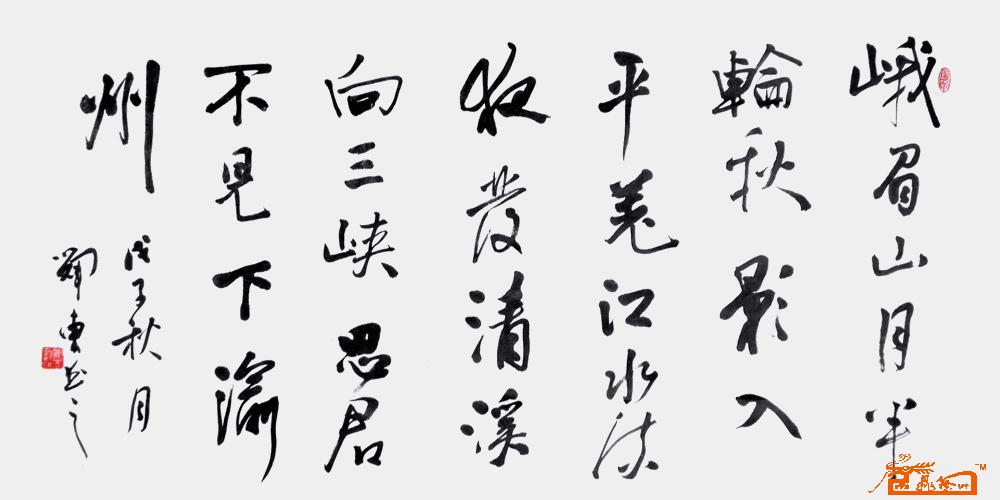 峨眉山月半
輪秋影入
平羌江水流
夜發清溪
向三峽思君
不見下渝
州
戊子秋月
书之